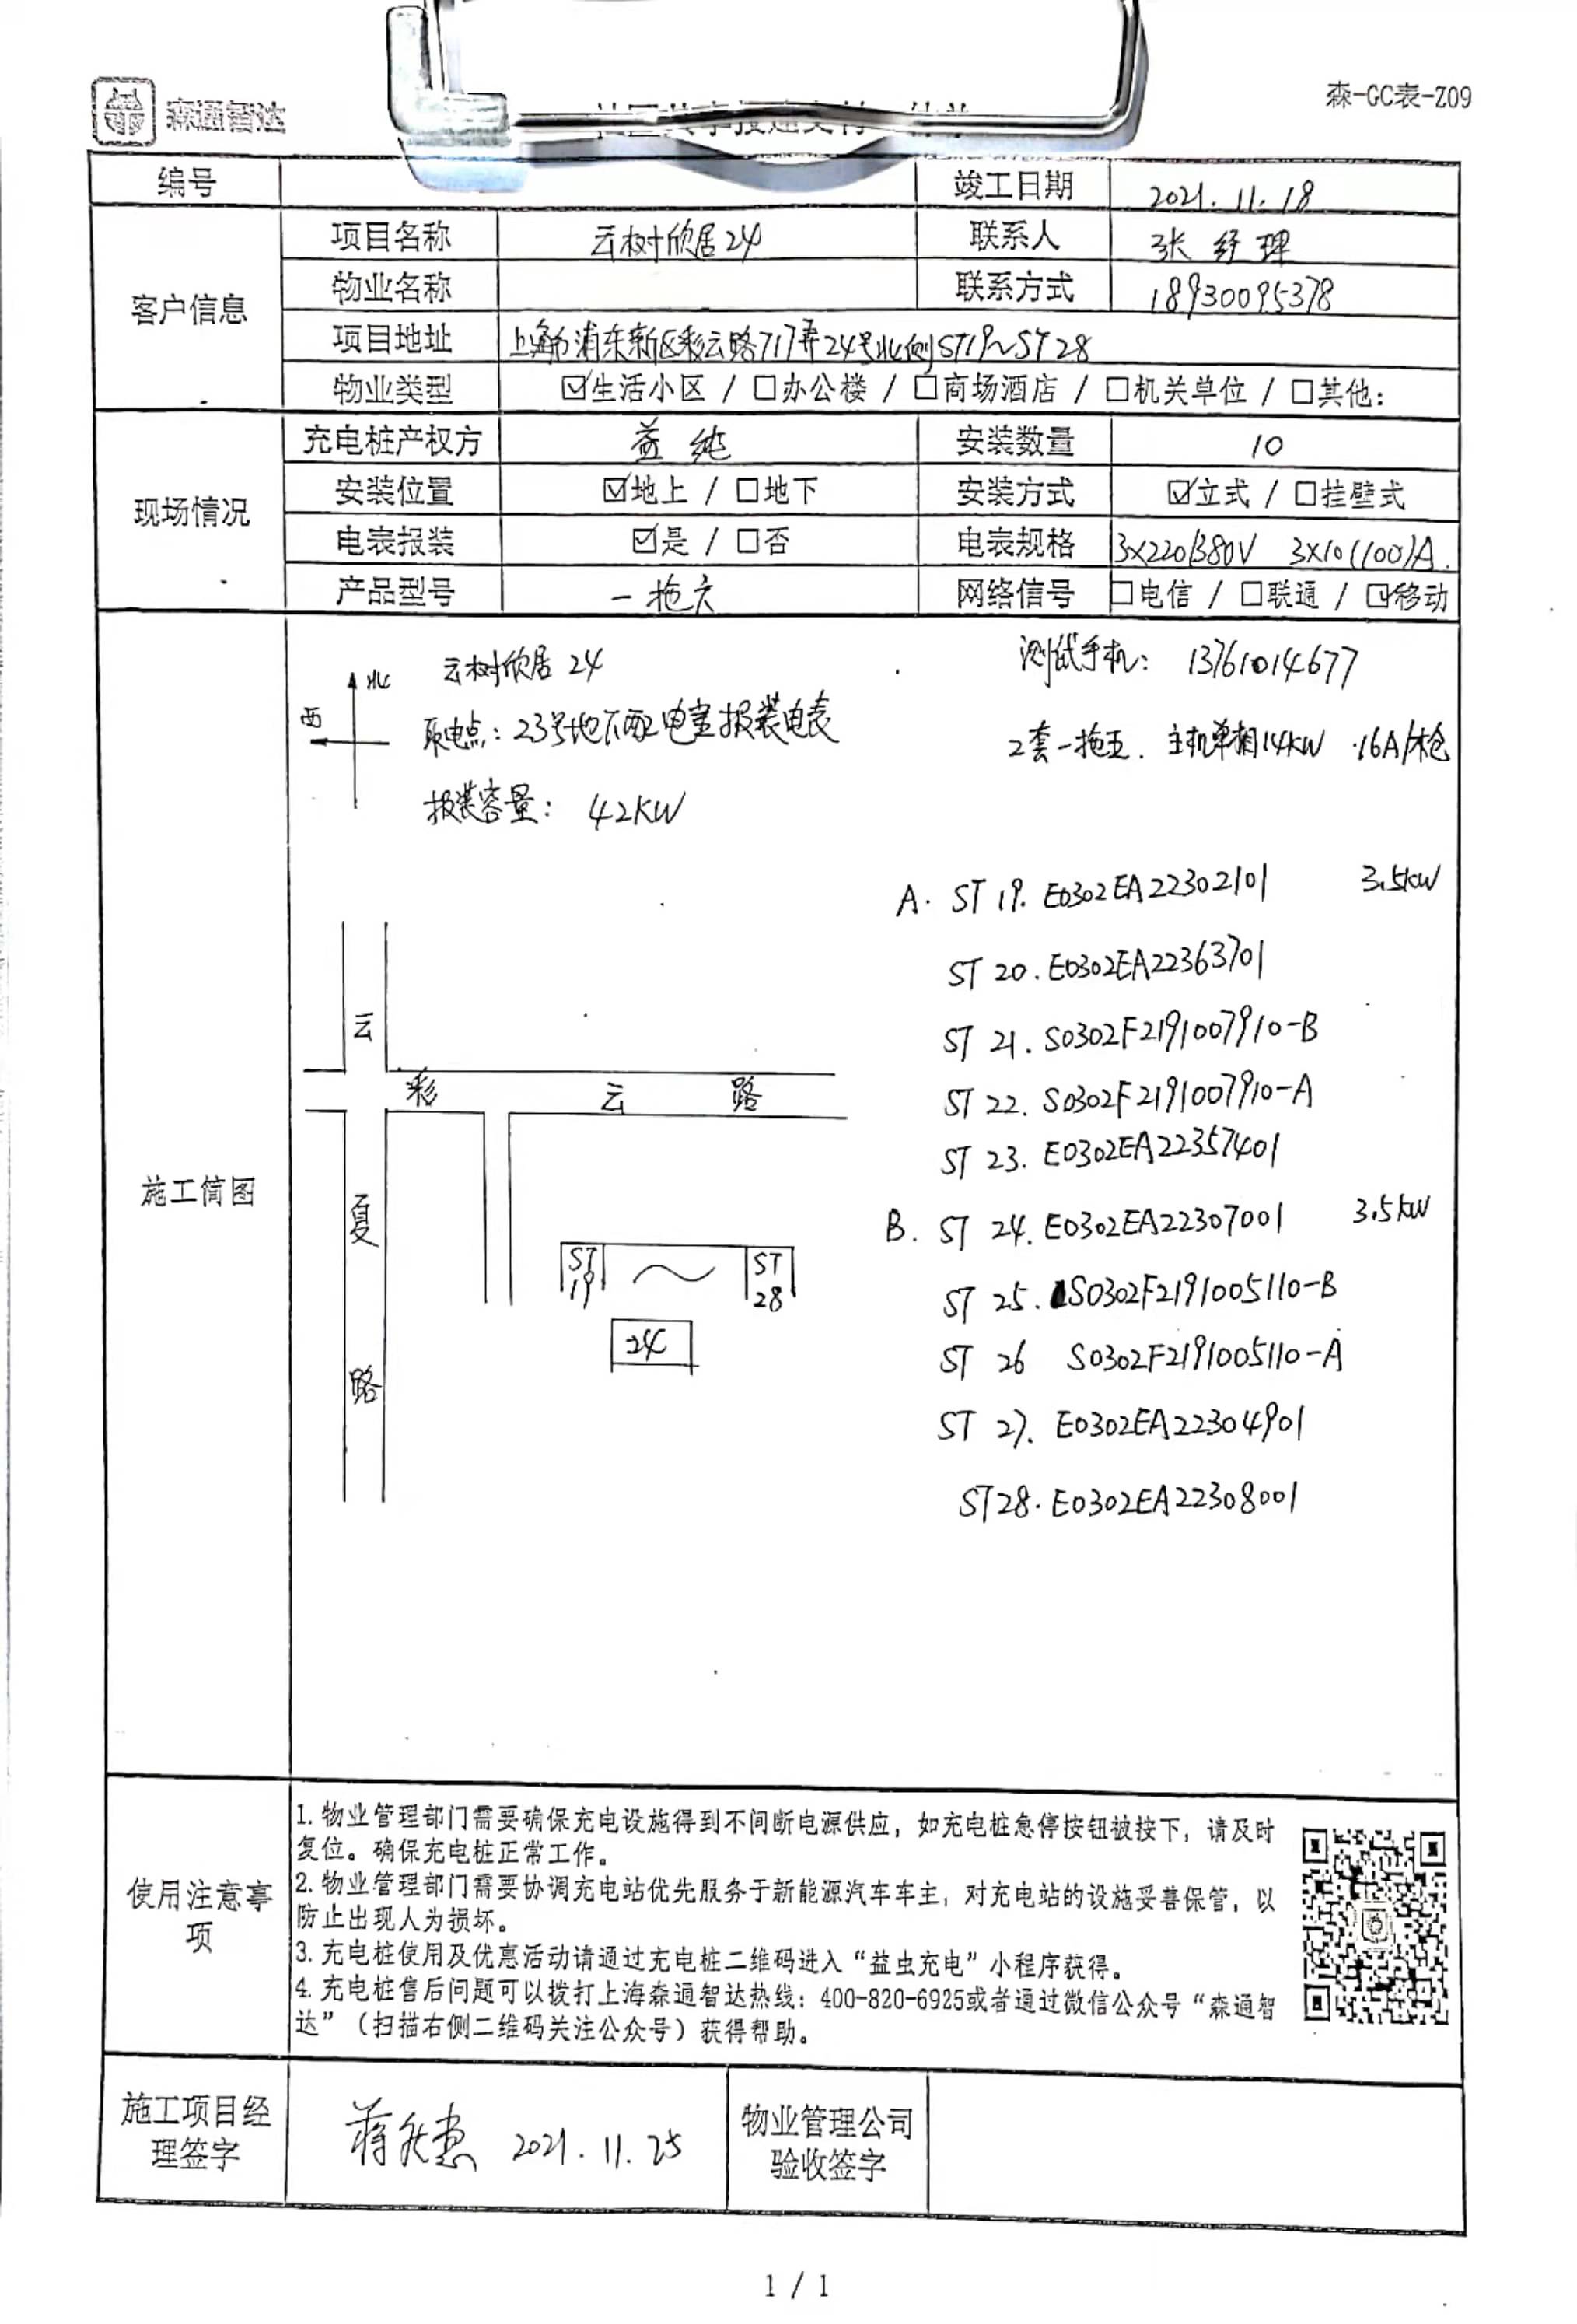 森通智达
森-GC表-Z09
编号
竣工日期 2021.11.18
客户信息
项目名称 云树欣居24 联系人 张经理
物业名称 联系方式 18930095378
项目地址 上海市浦东新区彩云路717弄24号北侧ST19~ST28
物业类型 ☑生活小区 / □办公楼 / □商场酒店 / □机关单位 / □其他:
现场情况
充电桩产权方 益纯 安装数量 10
安装位置 ☑地上 / □地下 安装方式 ☑立式 / □挂壁式
电表报装 ☑是 / □否 电表规格 3X220/380V 3X10(100)A.
产品型号 一拖六 网络信号 □电信 / □联通 / ☑移动
施工简图
北
西
云树欣居24
取电点:23号地下配电室报装电表
报装容量: 42KW
测试手机: 13761014677
2套一拖五. 主机单相14KW ·16A/枪
A. ST 19. E0302EA22302101 3.5kW
ST 20. E0302EA22363701
ST 21. S0302F2191007910-B
ST 22. S0302F2191007910-A
ST 23. E0302EA22357401
B. ST 24. E0302EA22307001 3.5kW
ST 25. S0302F2191005110-B
ST 26 S0302F2191005110-A
ST 27. E0302EA22304901
ST28. E0302EA22308001
彩云路
云夏路
ST19 ~ ST28
24
使用注意事项
1.物业管理部门需要确保充电设施得到不间断电源供应，如充电桩急停按钮被按下，请及时
复位。确保充电桩正常工作。
2.物业管理部门需要协调充电站优先服务于新能源汽车车主，对充电站的设施妥善保管，以
防止出现人为损坏。
3.充电桩使用及优惠活动请通过充电桩二维码进入“益虫充电”小程序获得。
4.充电桩售后问题可以拨打上海森通智达热线：400-820-6925或者通过微信公众号“森通智
达”（扫描右侧二维码关注公众号）获得帮助。
施工项目经理签字
2021.11.25
物业管理公司
验收签字
1 / 1